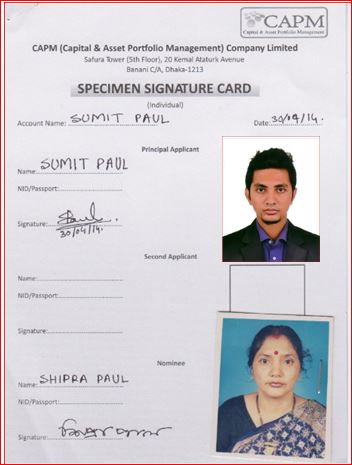 CAPM
Capital & Asset Portfolio Management
CAPM (Capital & Asset Portfolio Management) Company Limited
Safura Tower (5th Floor), 20 Kemal Ataturk Avenue
Banani C/A, Dhaka-1213
SPECIMEN SIGNATURE CARD
(Individual)
Account Name: SUMIT PAUL Date: 30/04/14.
Principal Applicant
Name: SUMIT PAUL
NID/Passport:
Signature:
30/04/14.
Second Applicant
Name:
NID/Passport:
Signature:
Nominee
Name: SHIPRA PAUL
NID/Passport:
Signature: